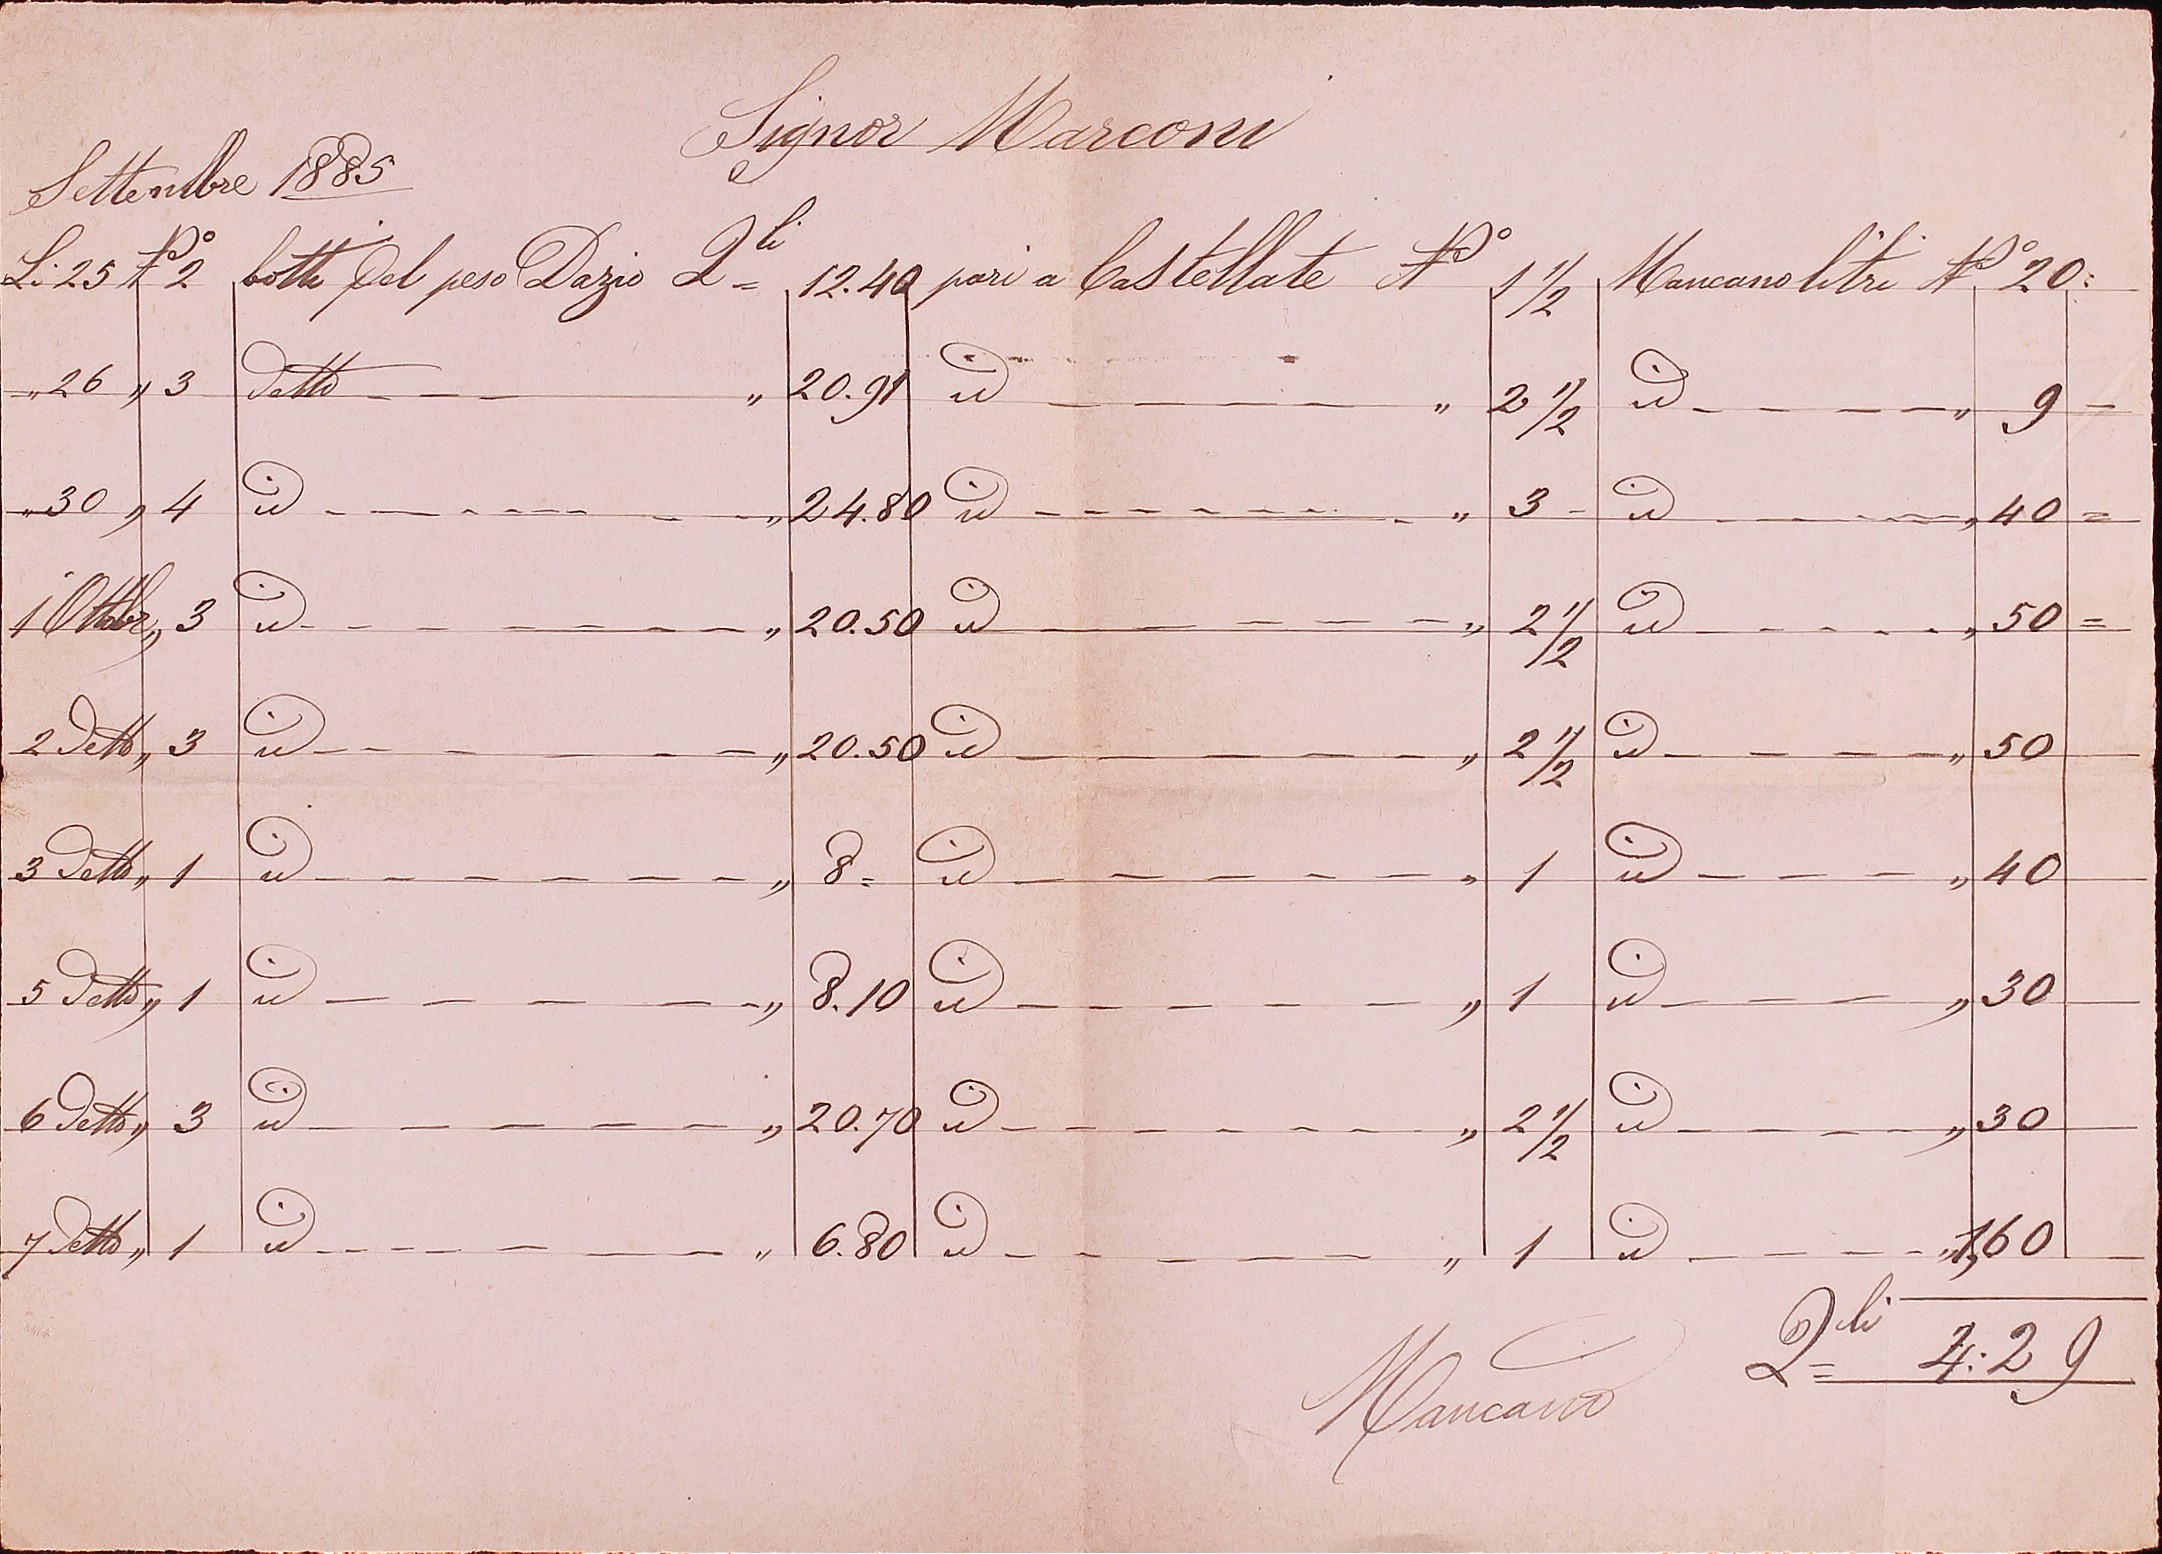 Signor Marconi
Settembre 1885
Li 25 No 2 botti del peso Dazio Qli = 12.40 pari a Castellate No 1 1/2 Mancano litri No 20 =
" 26 " 3 detto " 20.91 id " 2 1/2 id " 9 -
" 30 " 4 id " 24.80 id " 3 - id " 40 =
1 Ottobre " 3 id " 20.50 id " 2 1/2 id " 50 =
2 detto " 3 id " 20.50 id " 2 1/2 id " 50
3 detto " 1 id " 8 = id " 1 id " 40
5 detto " 1 id " 8.10 id " 1 id " 30
6 detto " 3 id " 20.70 id " 2 1/2 id " 30
7 detto " 1 id " 6.80 id " 1 id " 1,60
Mancano Qli = 4:29